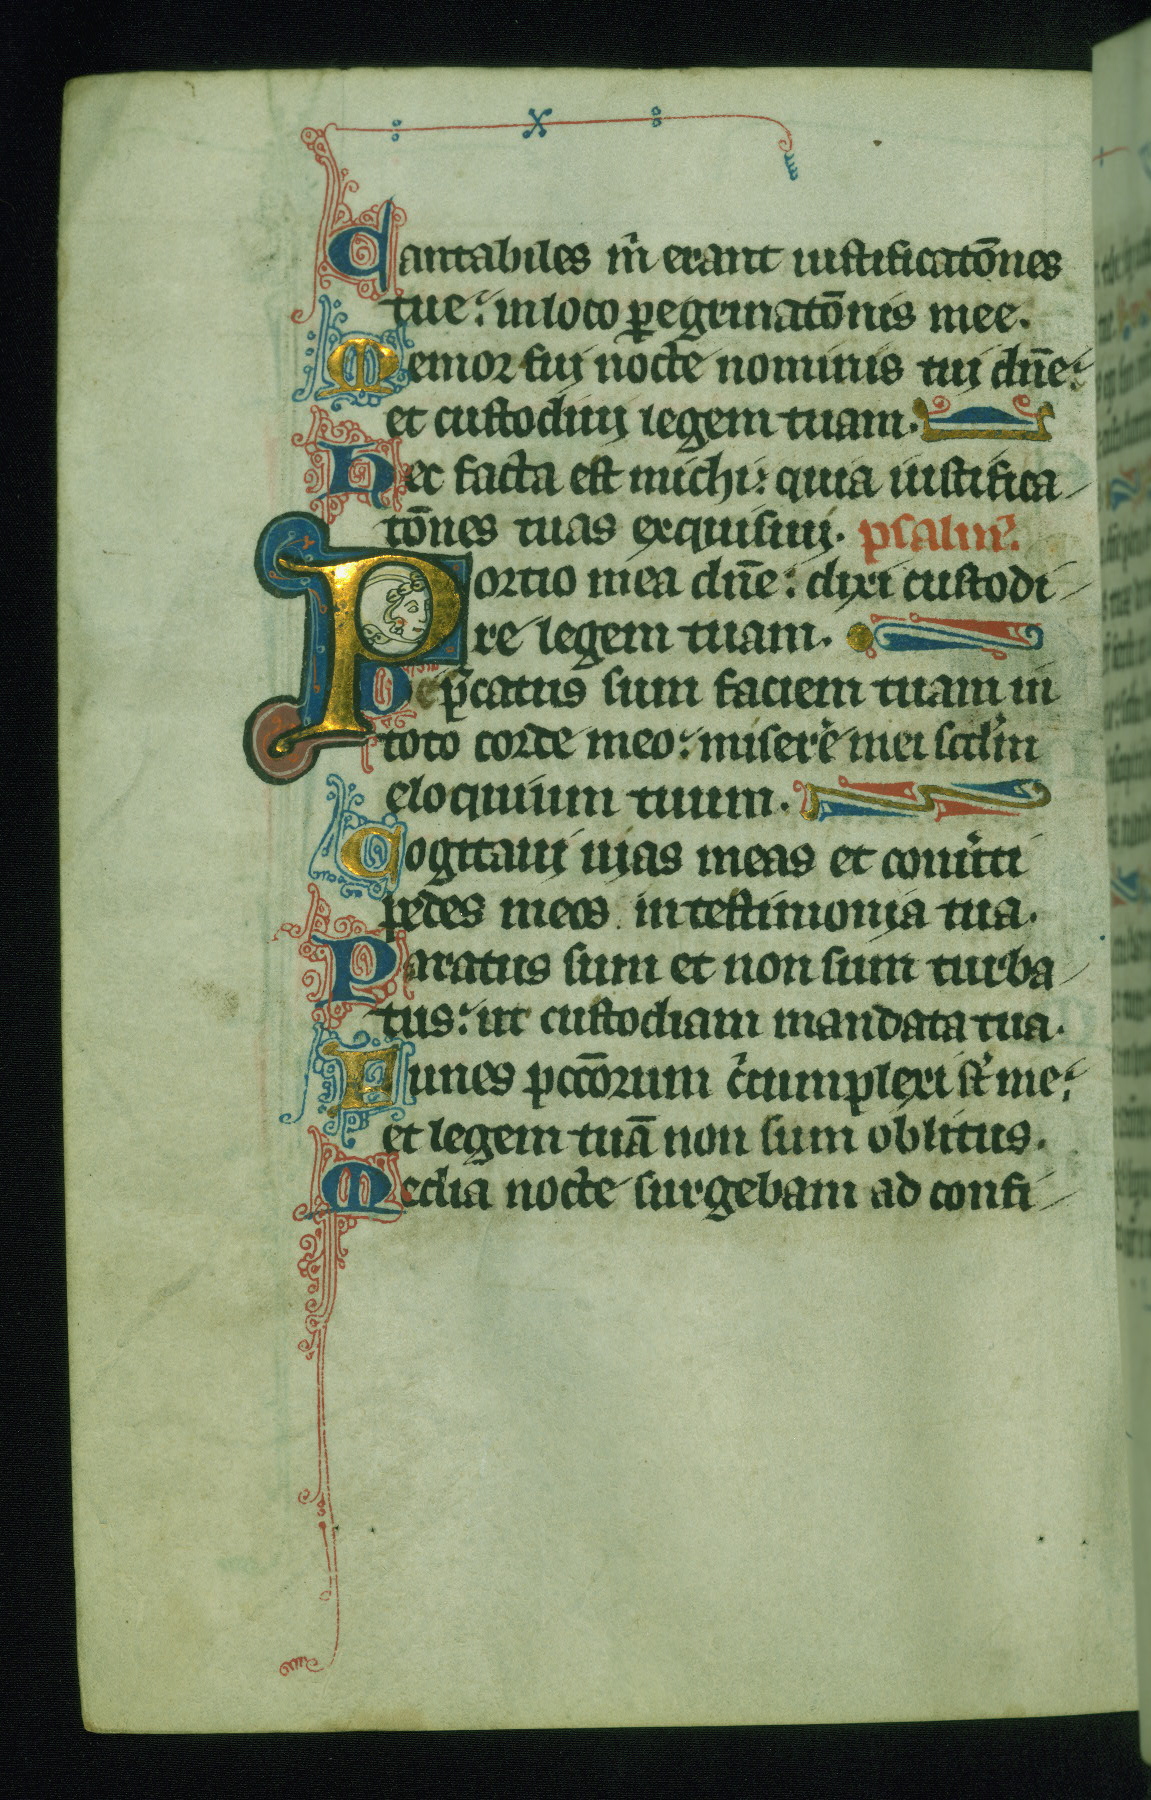 Cantabiles m̄ erant iustificatōnes
tue: in loco ꝑegrinatōnis mee.
Memor fui nocte nominis tui dn̄e:
et custodiui legem tuam.
Hec facta est michi: quia iustifica
tōnes tuas exquisiui. psalm᷒.
Portio mea dn̄e: dixi custodi
re legem tuam.
De p̄catus sum faciem tuam in
toto corde meo: miserē mei scd̄m
eloquium tuum.
Cogitaui uias meas et conuˀti
pedes meos in testimonia tua.
Paratus sum et non sum turba
tus: ut custodiam mandata tua.
Funes pcc̄orum cˀcumplexi st̄ me:
et legem tuā non sum oblitus.
Media nocte surgebam ad confi